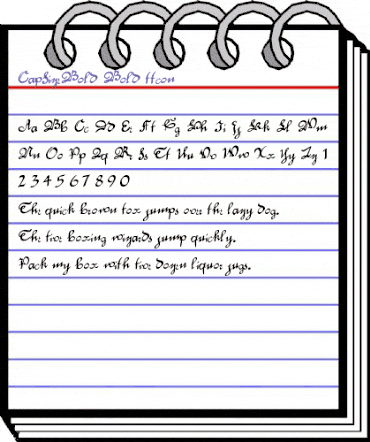 CapSineBold Bold Heon
Aa Bb Cc Dd Ee Ff Gg Hh Ii Jj Kk Ll Mm
Nn Oo Pp Qq Rr Ss Tt Uu Vv Ww Xx Yy Zz 1
2 3 4 5 6 7 8 9 0
The quick brown fox jumps over the lazy dog.
The five boxing wizards jump quickly.
Pack my box with five dozen liquor jugs.